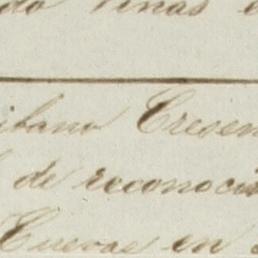 do Viñas e
itano Cresen
de reconoci
Cuevas en